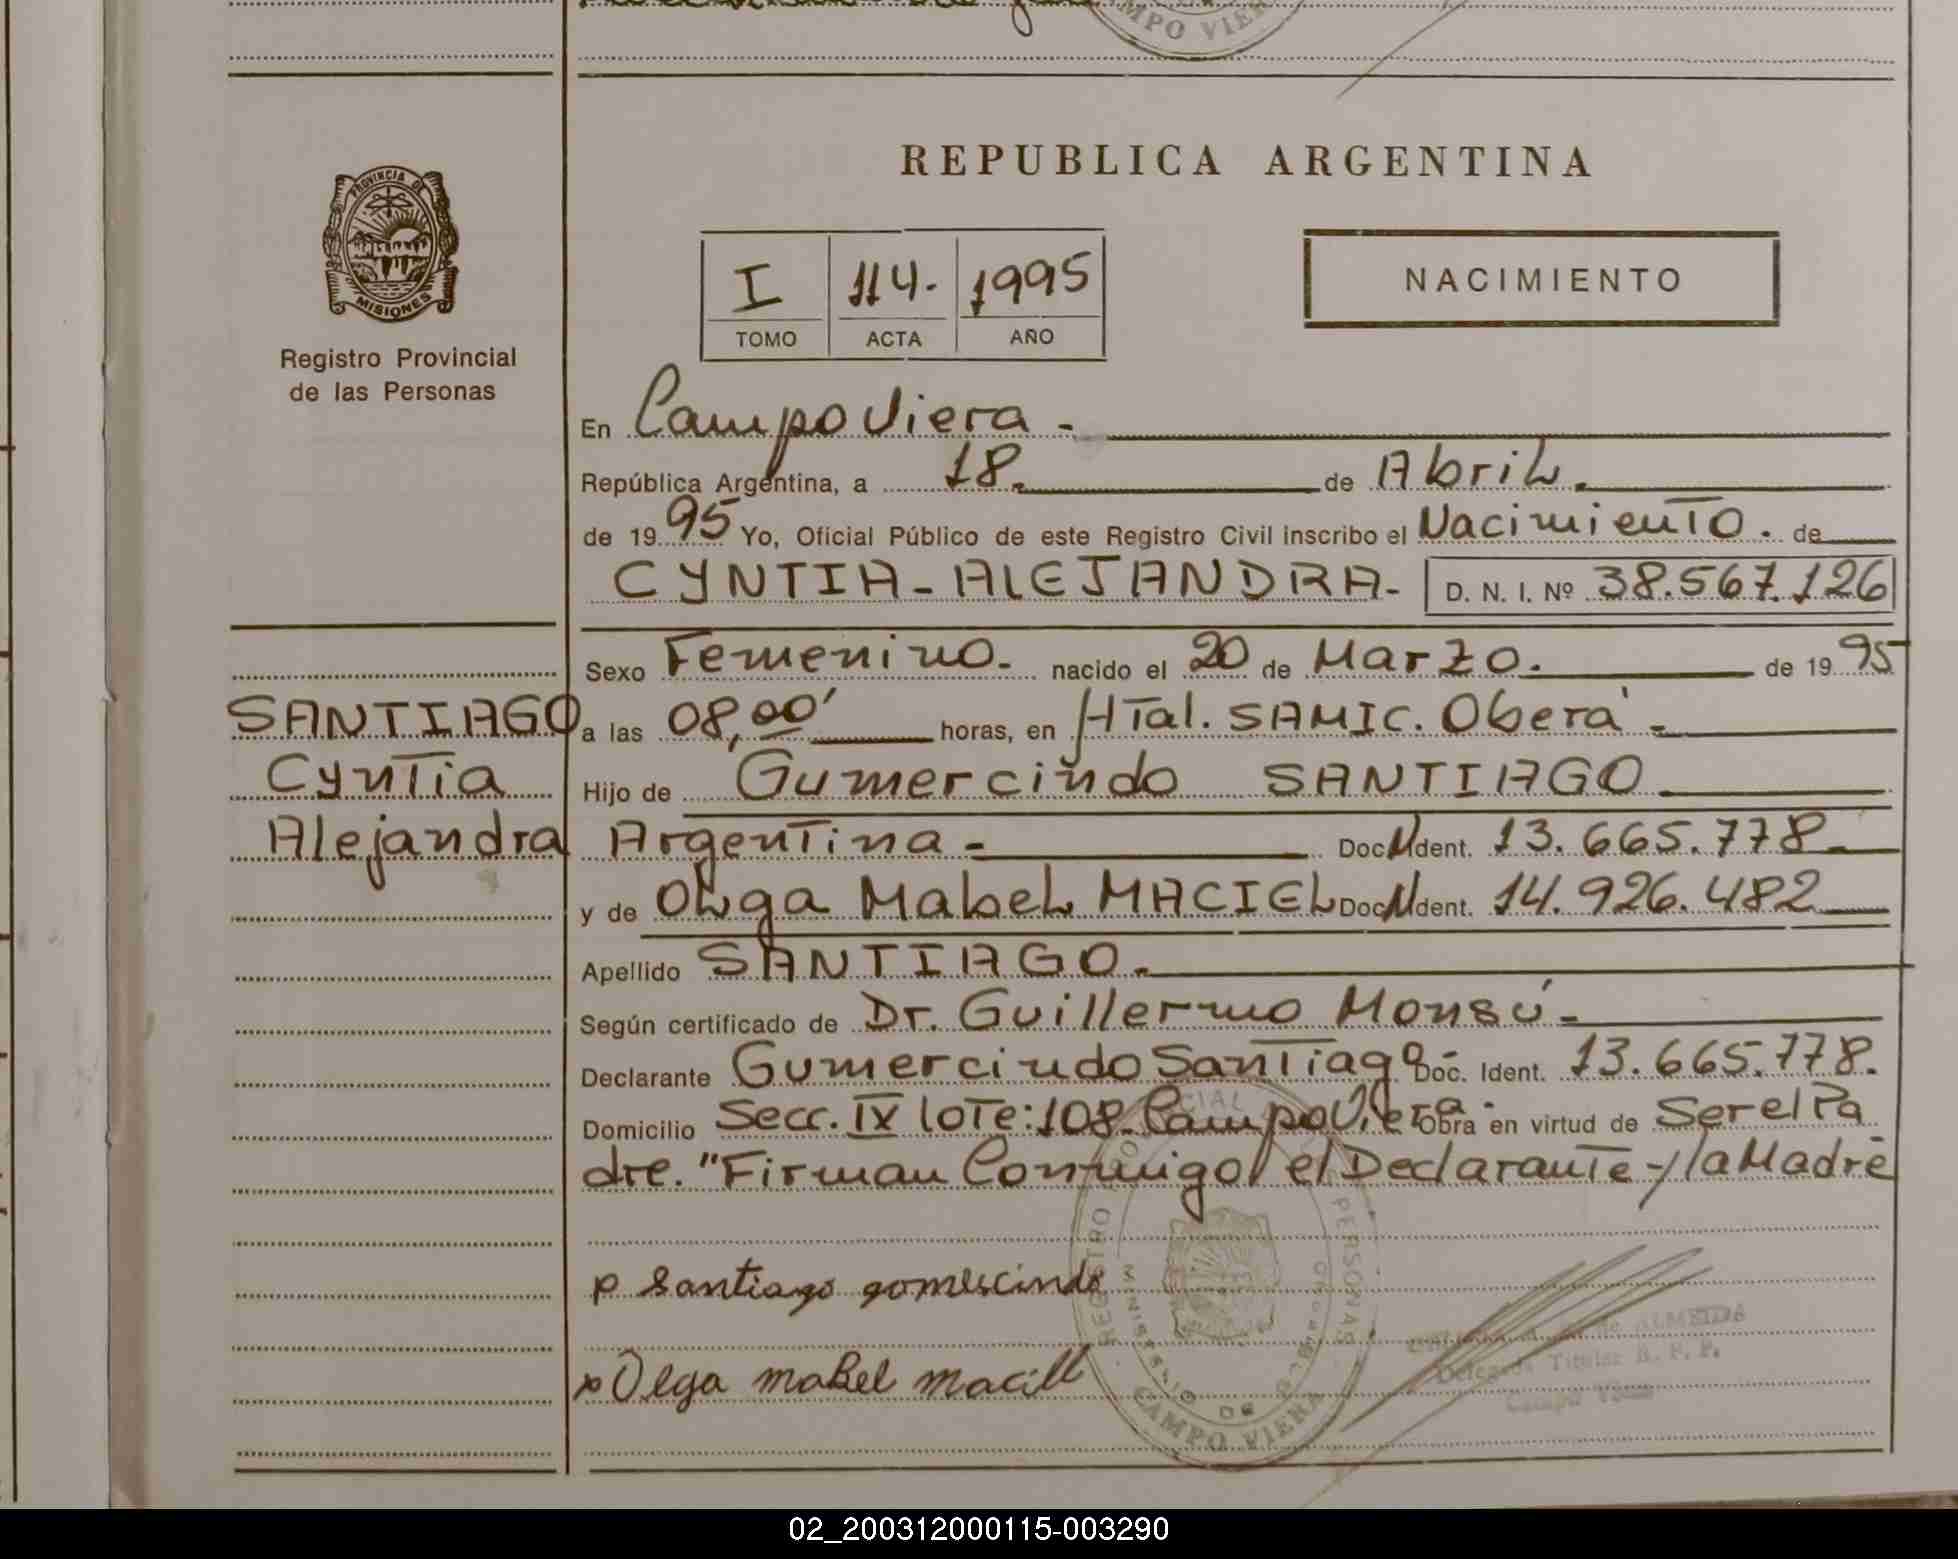 CAMPO VIERA
REPUBLICA ARGENTINA
PROVINCIA DE
MISIONES
Registro Provincial
de las Personas
I 114. 1995
TOMO ACTA AÑO
NACIMIENTO
En Campo Viera -
República Argentina, a 18. de Abril.
de 1995 Yo, Oficial Público de este Registro Civil inscribo el Nacimiento. de
CYNTIA-ALEJANDRA- D. N. I. Nº 38.567.126
Sexo Femenino. nacido el 20 de Marzo. de 1995
SANTIAGO
Cyntia
Alejandra
a las 08,00' horas, en HTal. SAMIC. Oberá -
Hijo de Gumercindo SANTIAGO
Argentina - Doc. Ident. 13.665.778-
y de Olga Mabel MACIEL Doc. Ident. 14.926.482
Apellido SANTIAGO.
Según certificado de Dr. Guillermo Monsú -
Declarante Gumercindo Santiago- Doc. Ident. 13.665.778.
Domicilio Secc. IX lote: 108. Campo Viera. Obra en virtud de Ser el Pa
dre. "Firman Conmigo el Declarante y la Madre
p santiago gomescindo
p Olga mabel macill
REGISTRO PERSONAS
MINISTERIO DE
CAMPO VIERA
de ALMEIDA
Delegada Titular R. P. P.
Campo Viera
02_200312000115-003290